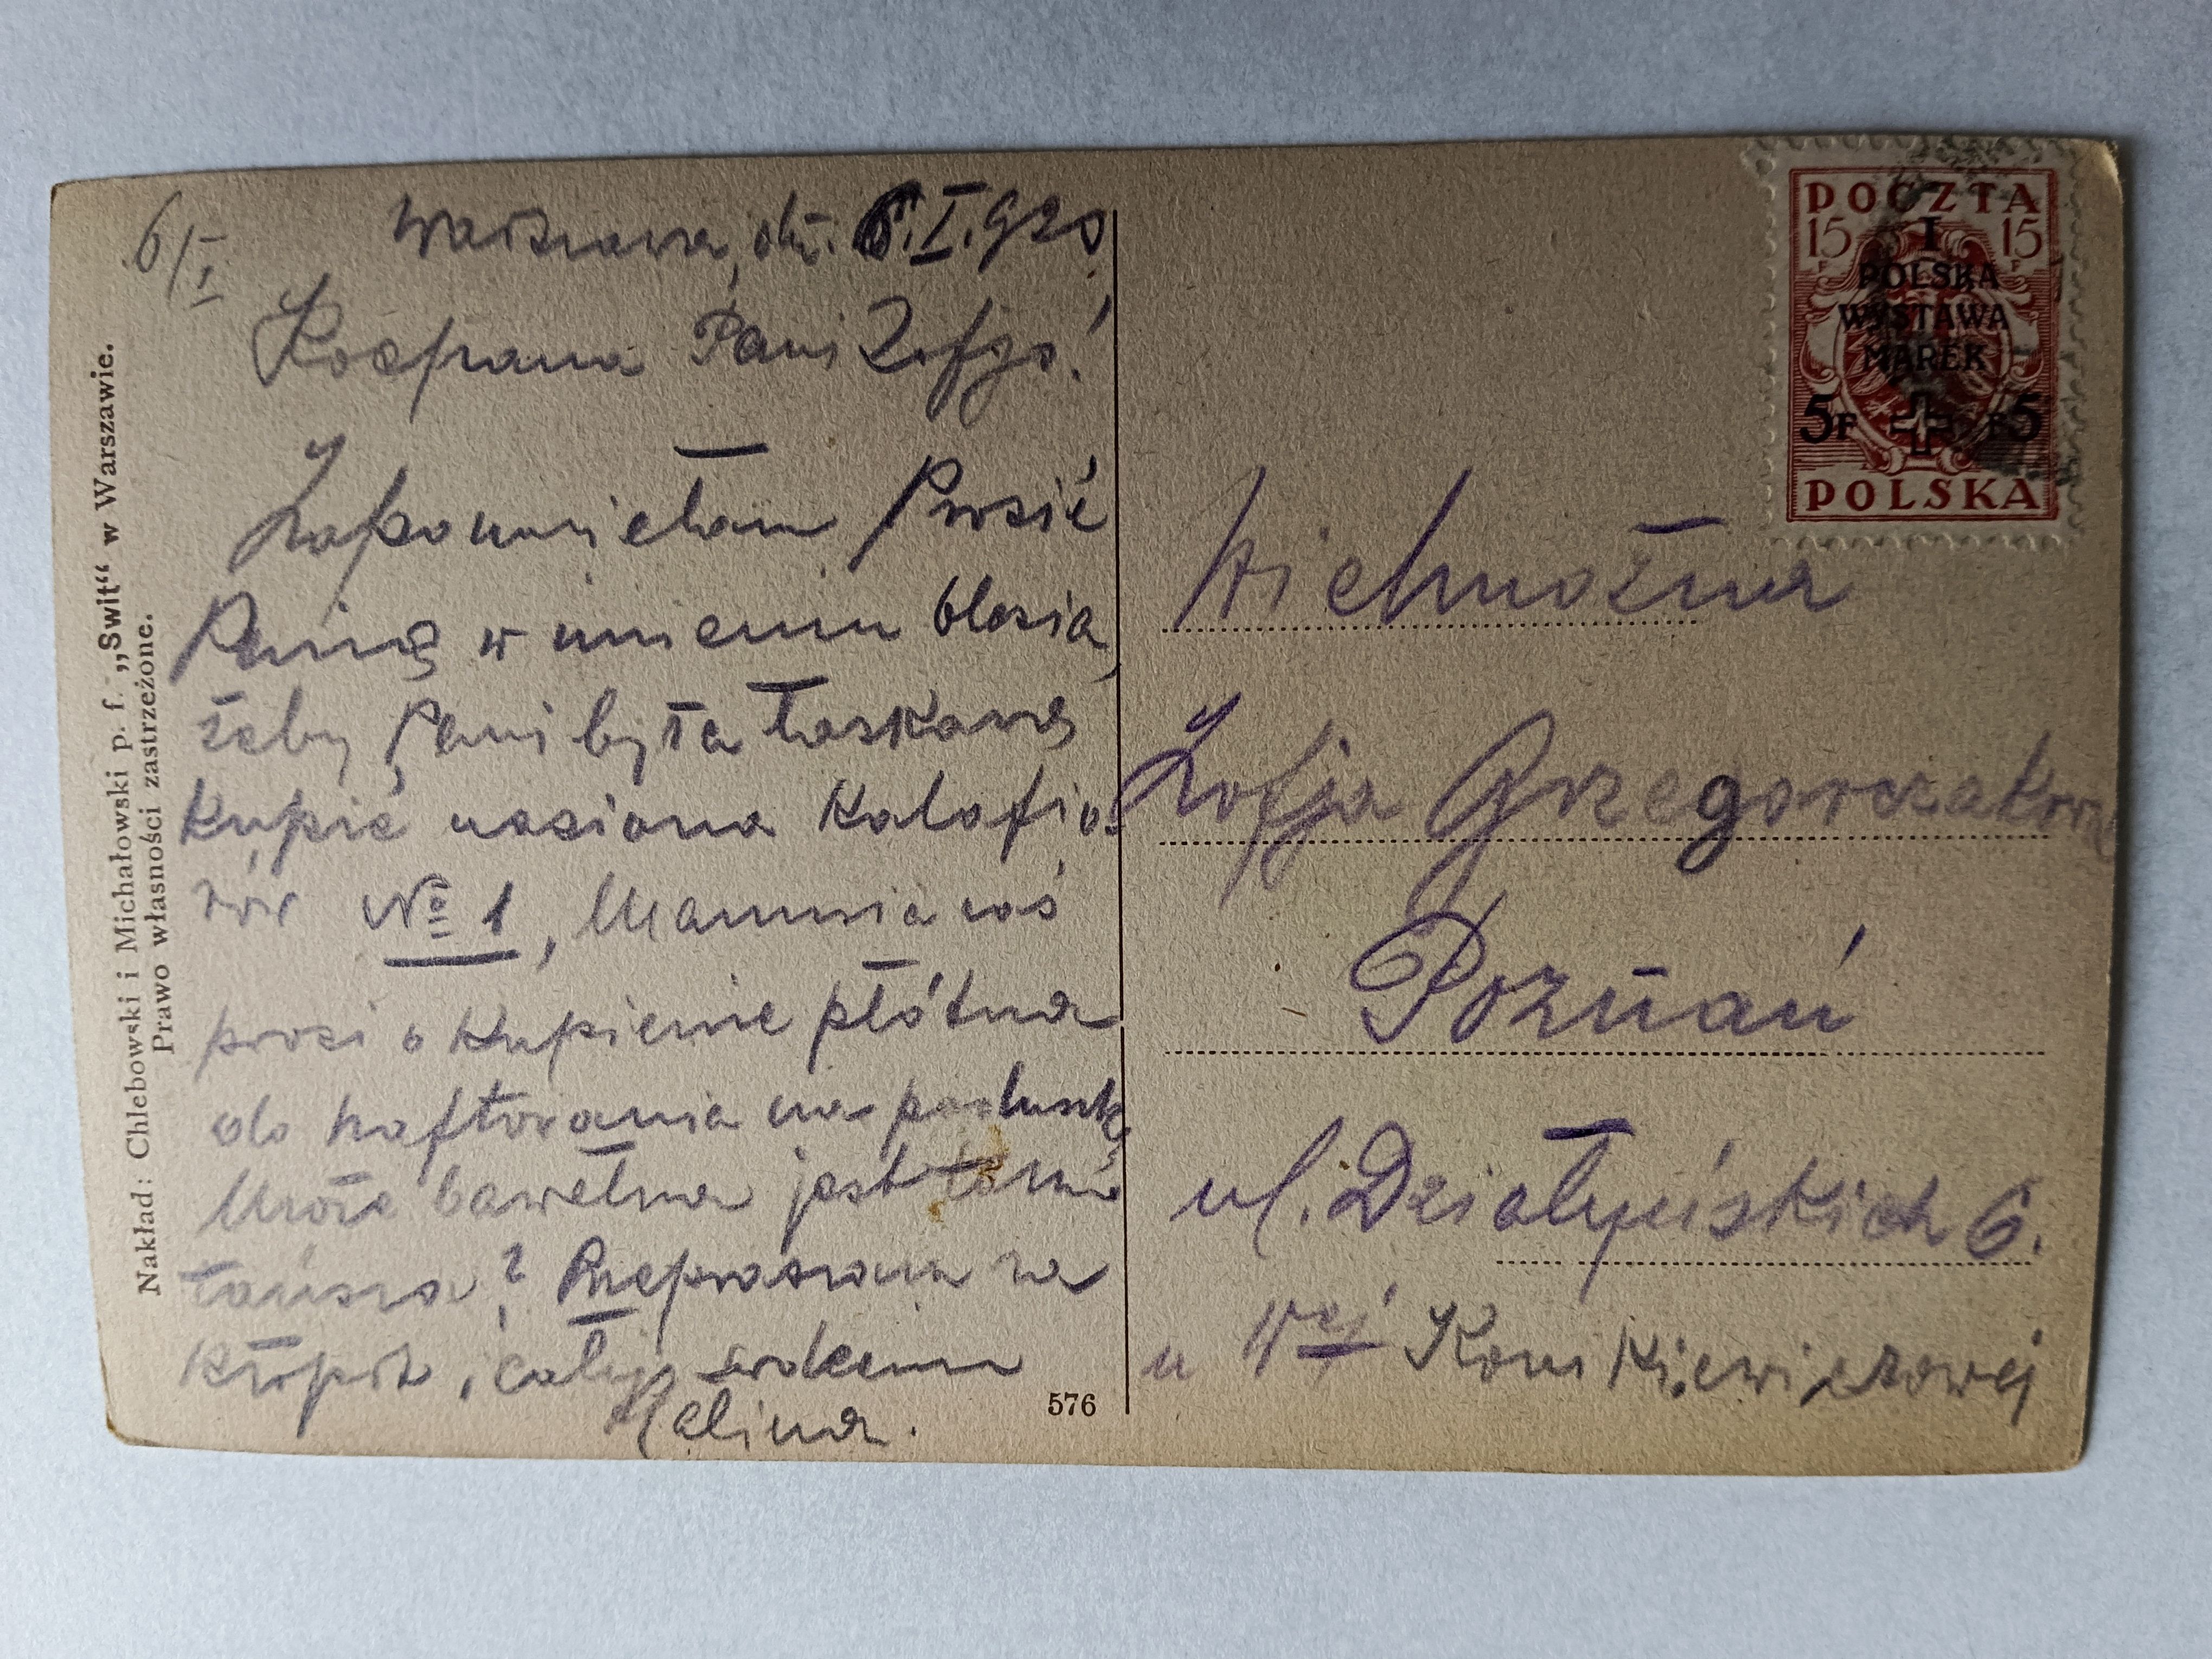 6/I
Warszawa, dn. 6.I.920
Kochana Pani Zofjo!
Zapomniałam Prosić
Panią w imieniu
żeby Pani była łaskawą
kupić nasiona Kalafio-
rów № 1, Mamusia zaś
prosi o kupienie płótna
do haftowania na poduszkę
Może bawełna jest tam
tańsza? Przepraszam za
kłopot, całuję
Halina.
576
Nakład: Chlebowski i Michałowski p. f. „Swit“ w Warszawie.
Prawo własności zastrzeżone.
POCZTA
15 15
F F
I
POLSKA
WYSTAWA
MAREK
5F F5
POLSKA
Wielmożna
Zofja Grzegorczakówna
Poznań
ul. Działyńskich 6.
u Wej Konikiewiczowej